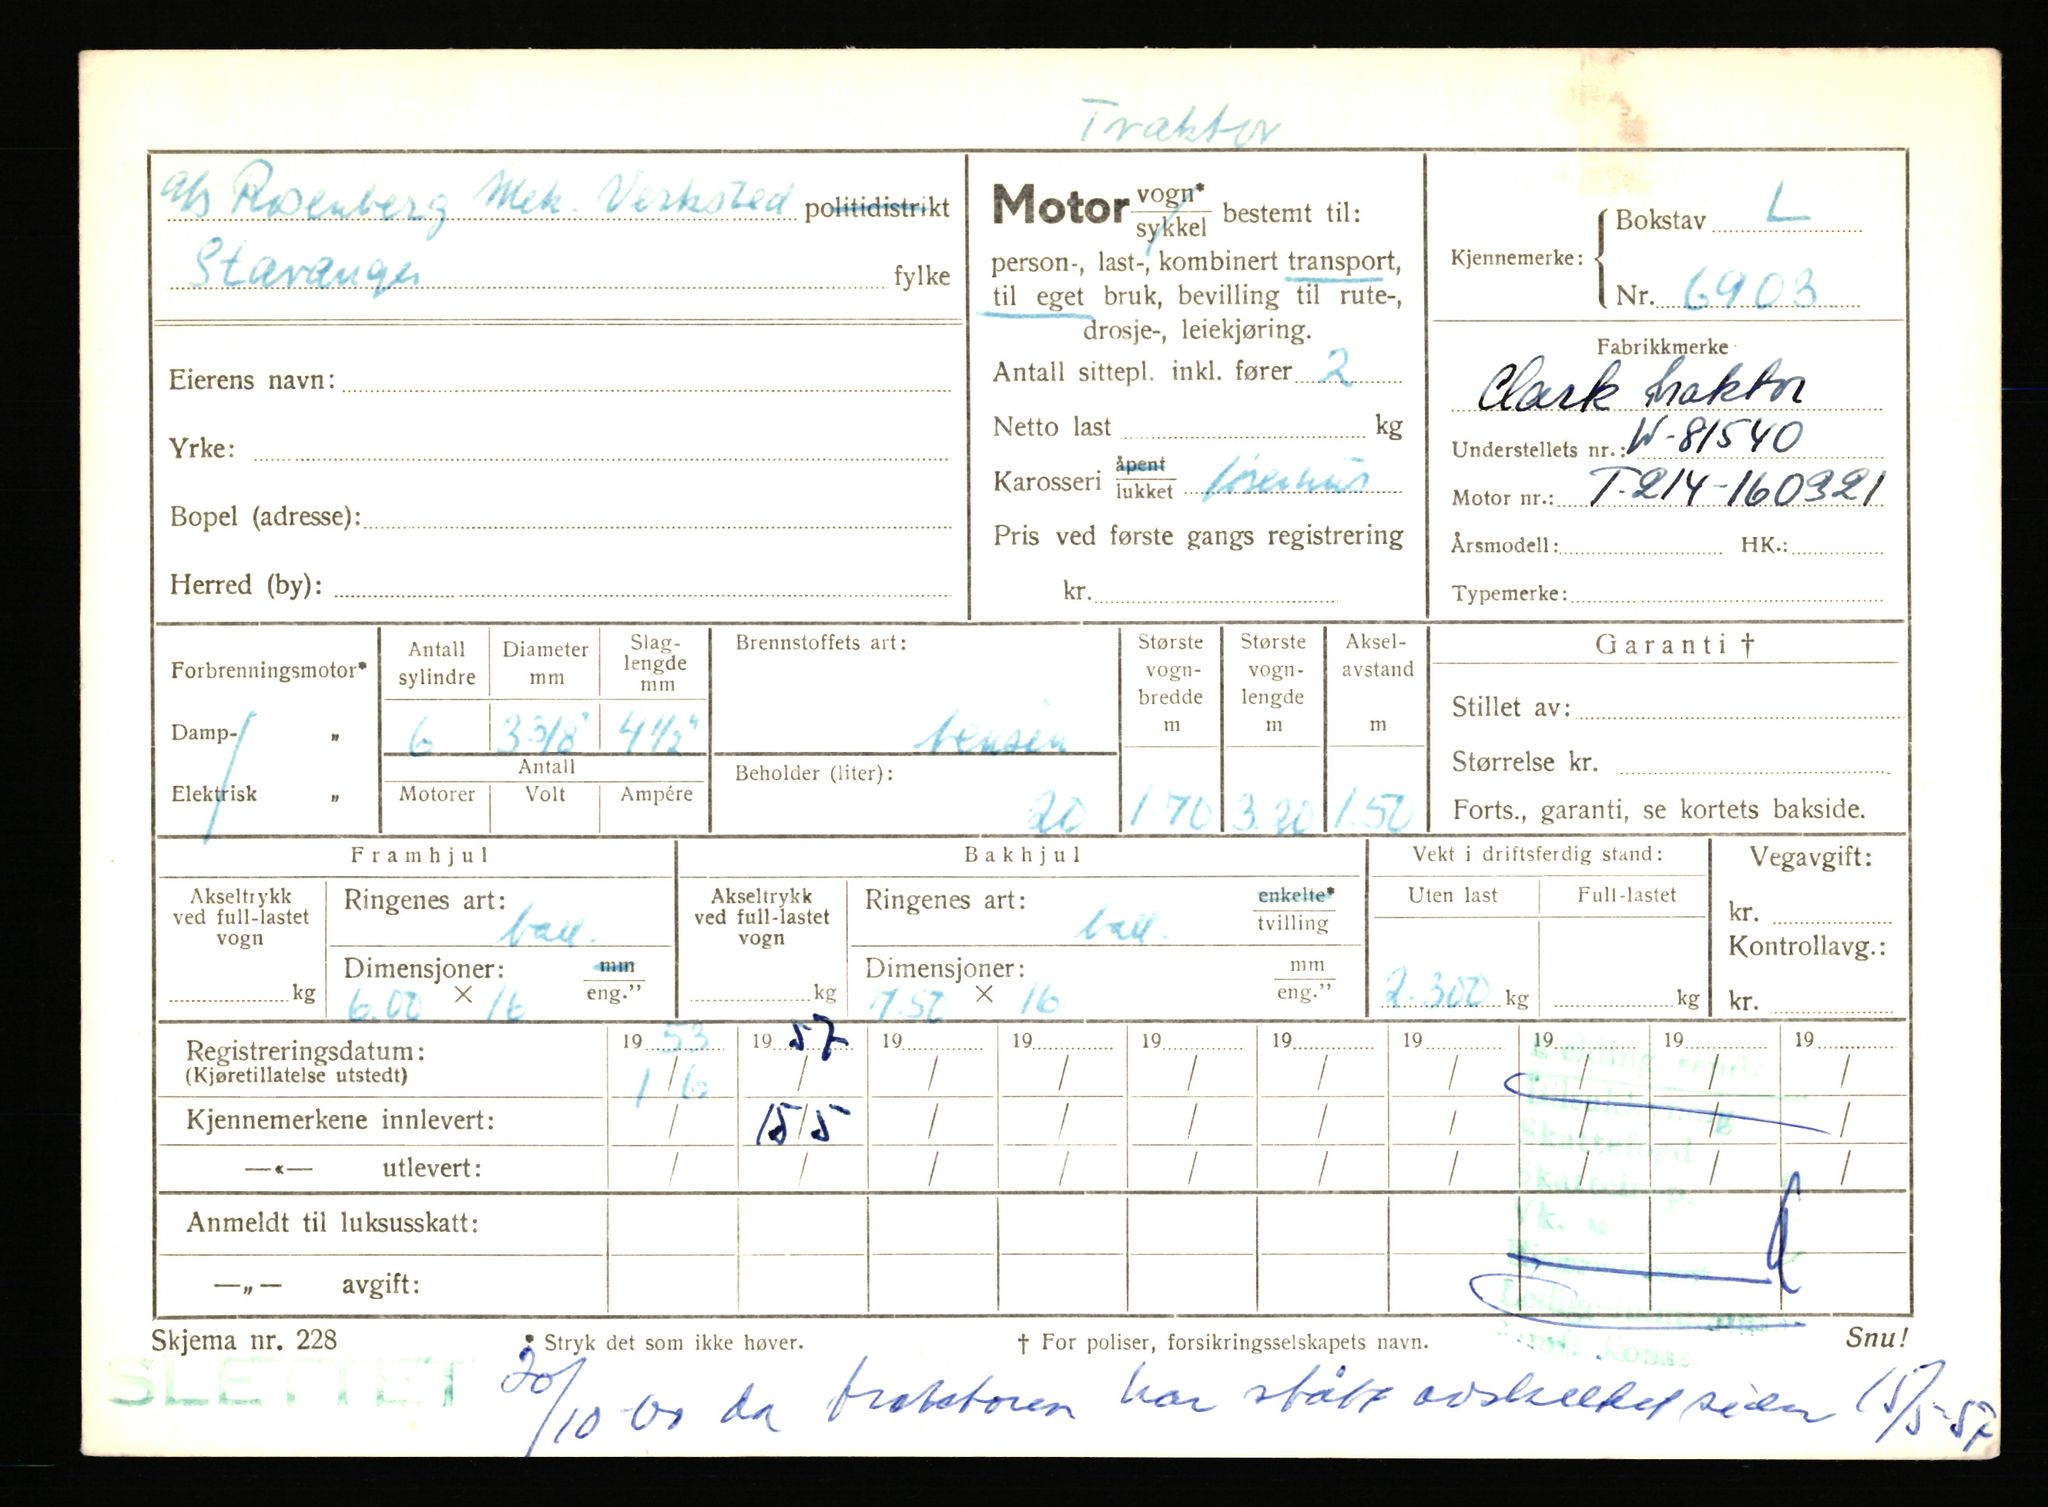 Traktor
a/s Rosenberg Mek. Verksted politidistrikt
Stavanger fylke
Eierens navn:
Yrke:
Bopel (adresse):
Herred (by):
Motor vogn* sykkel bestemt til:
person-, last-, kombinert transport,
til eget bruk, bevilling til rute-,
drosje-, leiekjøring.
Antall sittepl. inkl. fører 2
Netto last kg
Karosseri åpent lukket
Pris ved første gangs registrering
kr.
Kjennemerke: Bokstav L
Nr. 6903
Fabrikkmerke
Clark traktor
Understellets nr.: W-81540
Motor nr.: T.214-160321
Årsmodell: HK.:
Typemerke:
Forbrenningsmotor*
Damp- „
Elektrisk „
Antall sylindre
6
Diameter mm
3 3/8"
Slag-
lengde
mm
4 1/2"
Antall
Motorer Volt Ampére
Brennstoffets art:
bensin
Beholder (liter):
20
Største
vogn-
bredde
m
1.70
Største
vogn-
lengde
m
3.20
Aksel-
avstand
m
1.50
Garanti †
Stillet av:
Størrelse kr.
Forts., garanti, se kortets bakside.
Framhjul
Akseltrykk
ved full-lastet
vogn
kg
Ringenes art:
ball.
Dimensjoner: mm eng."
6.00 × 16
Bakhjul
Akseltrykk
ved full-lastet
vogn
kg
Ringenes art: enkelte* tvilling
ball.
Dimensjoner: mm eng."
7.50 × 16
Vekt i driftsferdig stand:
Uten last Full-lastet
2.300 kg kg
Vegavgift:
kr.
Kontrollavg.:
kr.
Registreringsdatum: 19 53 19 57 19 19 19 19 19 19 19 19
(Kjøretillatelse utstedt) 1/6 / / / / / / / / /
Kjennemerkene innlevert: / 15/5 / / / / / / / /
—«— utlevert: / / / / / / / / / /
Anmeldt til luksusskatt:
—„— avgift:
Melding sendt
Skatteford
Vk.
Skjema nr. 228 * Stryk det som ikke høver. † For poliser, forsikringsselskapets navn. Snu!
SLETTET 20/10-60 da traktoren har stått avskiltet siden 15/5-57